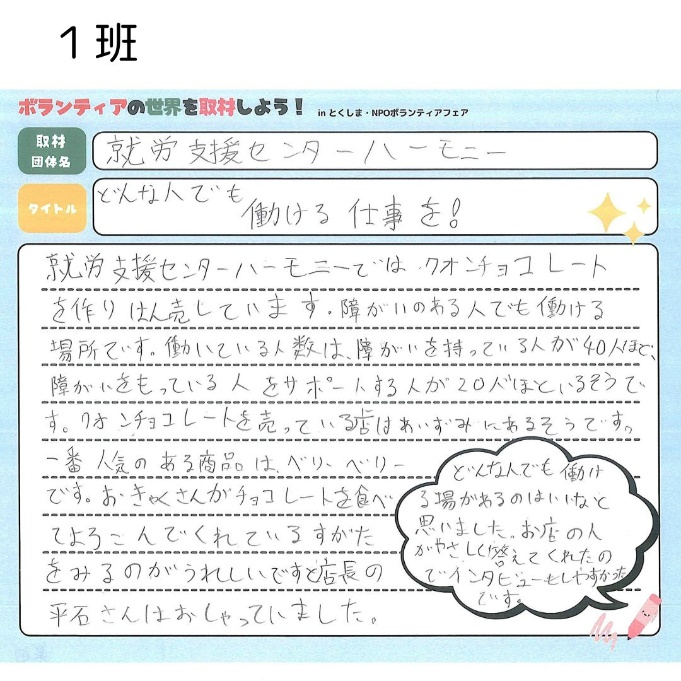 1班
ボランティアの世界を取材しよう! in とくしま・NPOボランティアフェア
取材
団体名
就労支援センターハーモニー
タイトル
どんな人でも
働ける仕事を!
就労支援センターハーモニーでは、クオンチョコレート
を作りはん売しています。障がいのある人でも働ける
場所です。働いている人数は、障がいを持っている人が40人ほど、
障がいをもっている人をサポートする人が20人ほどいるそうで
す。クオンチョコレートを売っている店はあいずみにあるそうです。
一番人気のある商品は、ベリーベリー
です。おきゃくさんがチョコレートを食べ
てよろこんでくれているすがた
をみるのがうれしいですと店長の
平石さんはおしゃっていました。
どんな人でも働け
る場があるのはいいなと
思いました。お店の人
がやさしく答えてくれたの
でインタビューもしやすかった
です。